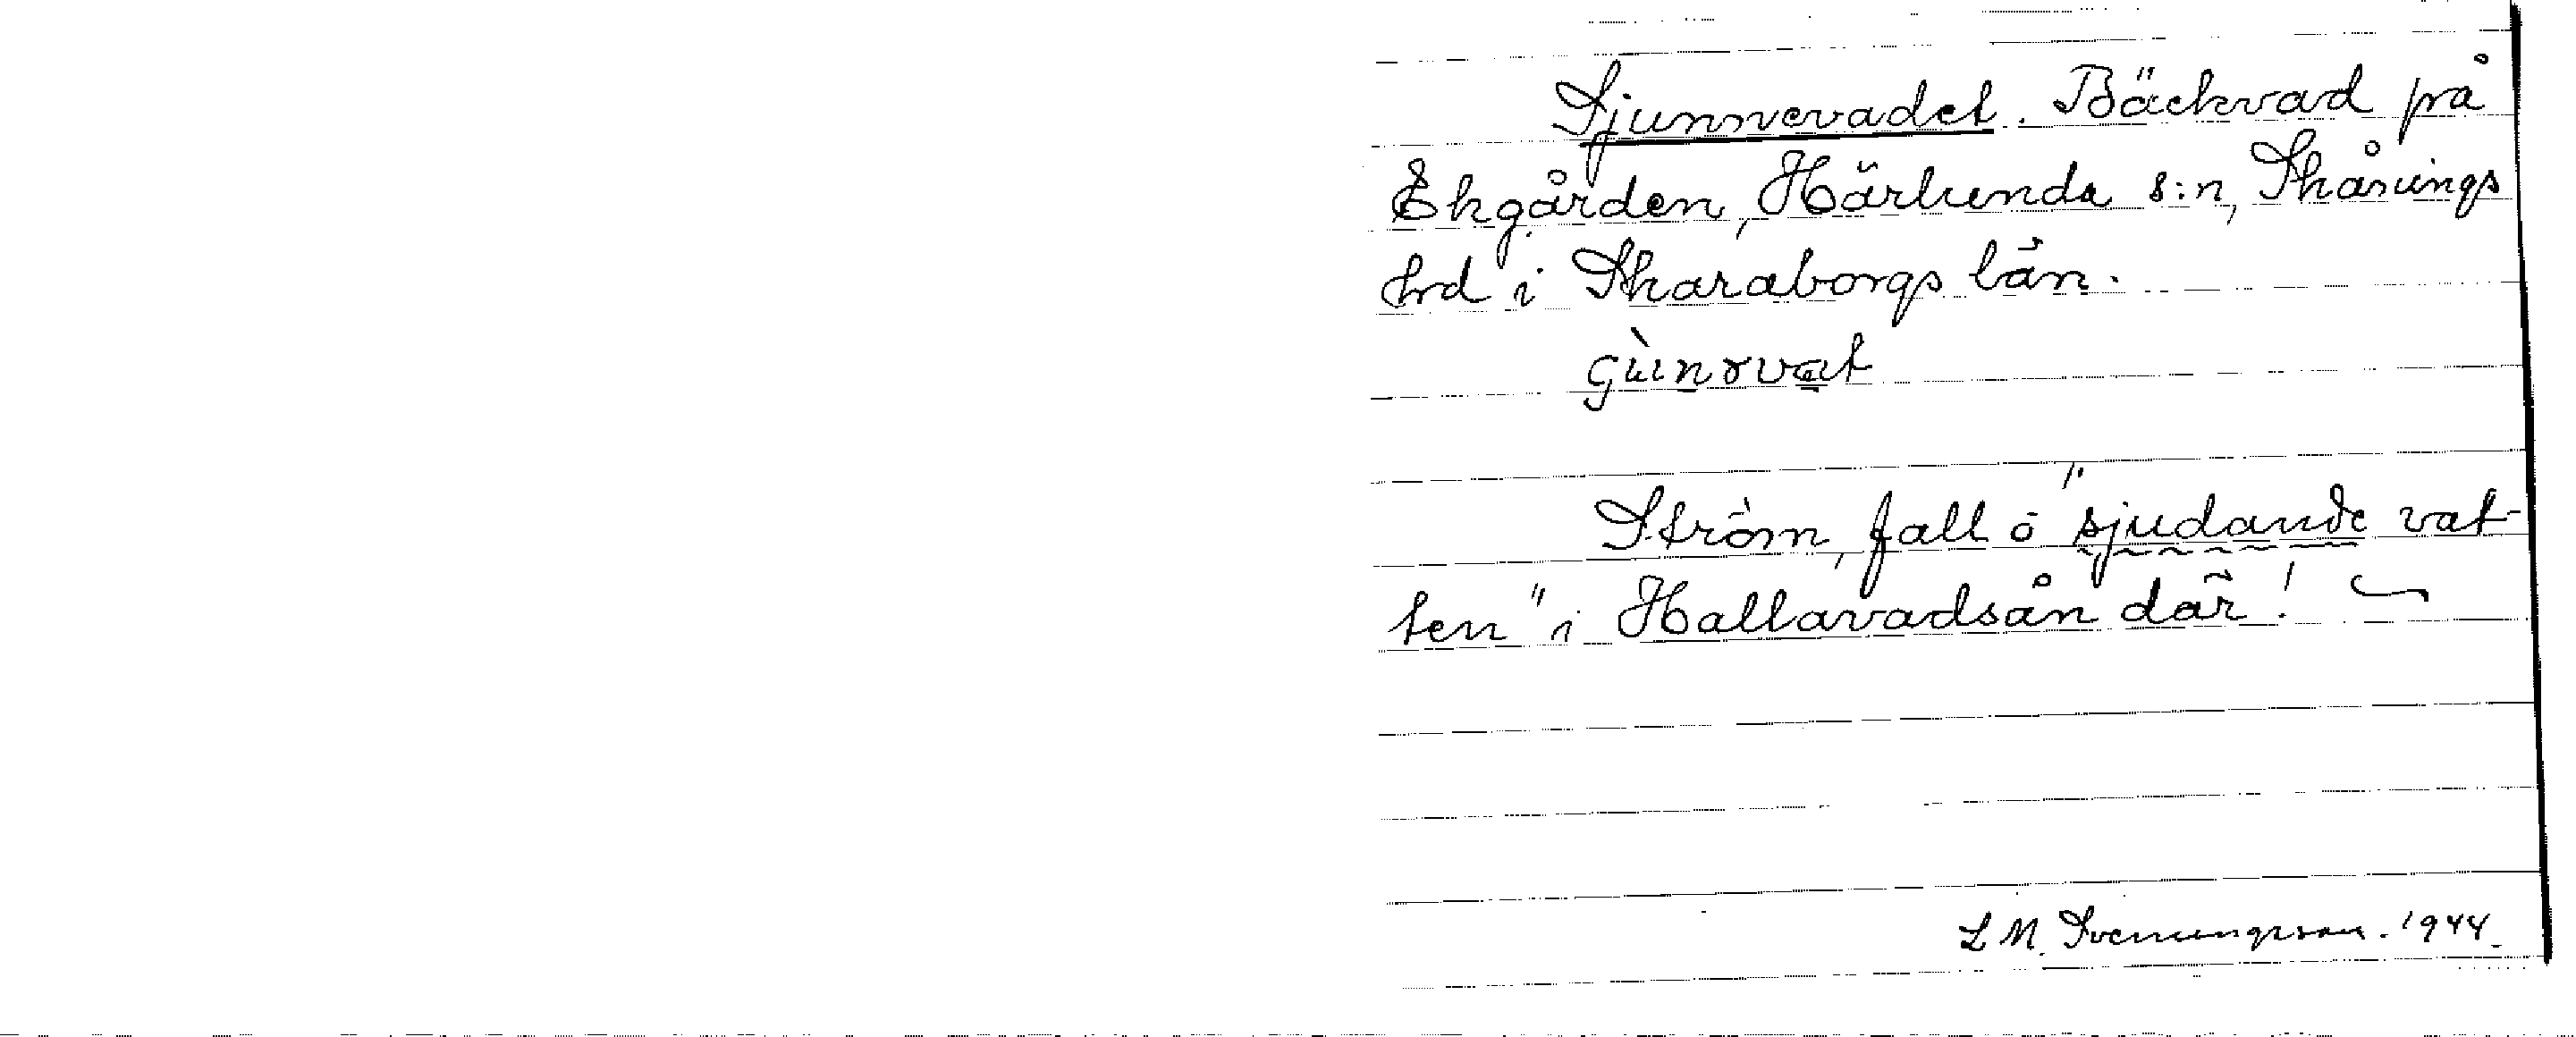 Sjunnevadet. Bäckvad på
Ekgården, Härlunda s:n, Skånings
hrd i Skaraborgs län.
Ström, fall o "sjudande vat-
ten" i Hallavadsån där!
L M. Svenungsson. 1944.